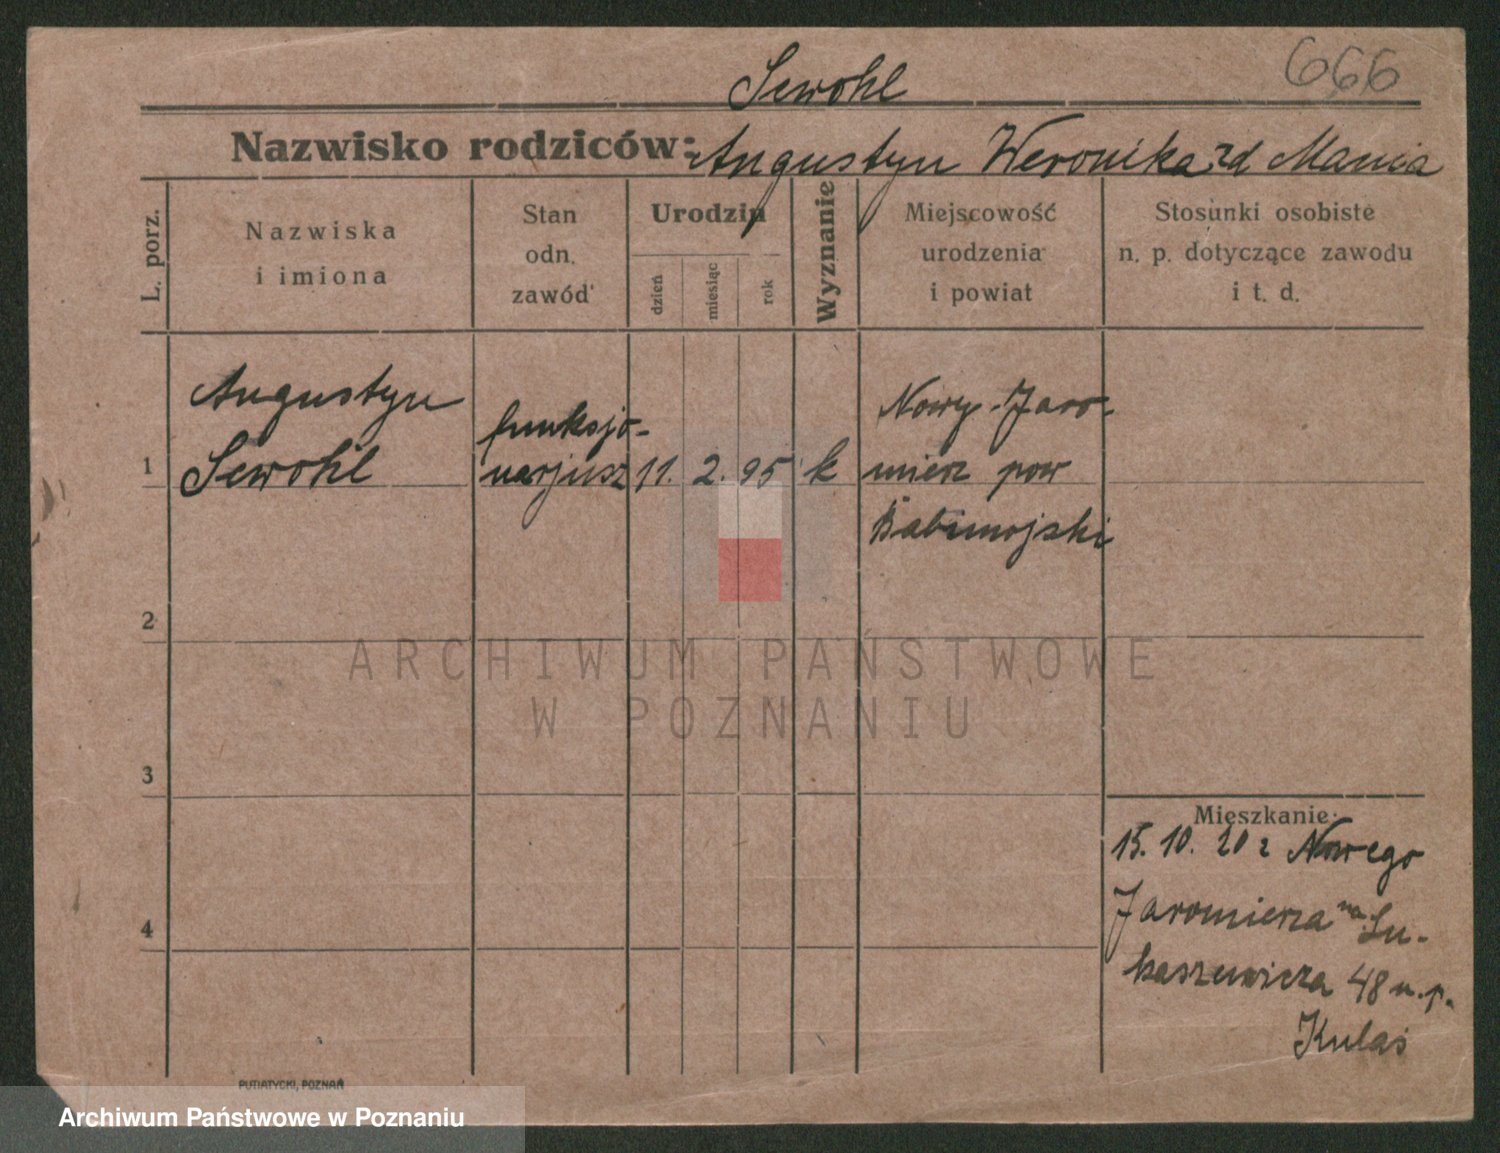 Sewohl
666
Nazwisko rodziców: Augustyn Weronika zd Mania
L. porz.
Nazwiska
i imiona
Stan
odn.
zawód
Urodzin
dzień
miesiąc
rok
Wyznanie
Miejscowość
urodzenia
i powiat
Stosunki osobiste
n. p. dotyczące zawodu
i t. d.
1
Augustyn
Sewohl
funksjo-
narjusz
11. 2. 95
k
Nowy-Jaro-
mierz pow
Babimojski
2
3
4
Mieszkanie:
15. 10. 20 z Nowego
Jaromierza na Łu-
kaszewicza 48 u. p.
Kulas
PUTIATYCKI, POZNAŃ
ARCHIWUM PAŃSTWOWE
W POZNANIU
Archiwum Państwowe w Poznaniu